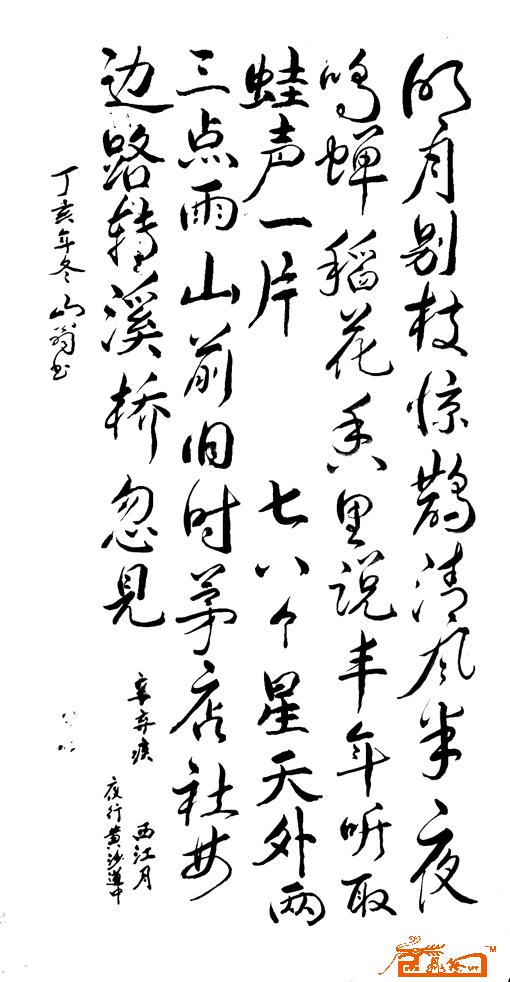 明月别枝惊鹊清风半夜
鸣蝉稻花香里说丰年听取
蛙声一片 七八个星天外两
三点雨山前旧时茅店社林
边路转溪桥忽见
辛弃疾 西江月
夜行黄沙道中
丁亥年冬山翁书